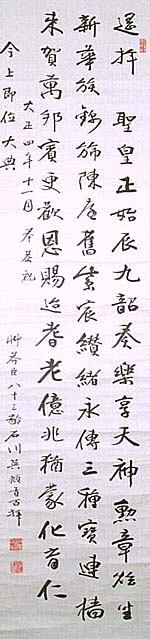 遥拝 聖皇正始辰九韶奏樂享天神勲章生
新華族錦旆陳庭舊紫宸纉緒永傳三種寶連檣
來賀萬邦賓更歓恩賜迨耆老億兆猶蒙化育仁
大正四年十一月 奉恭祝
今上即位大典
艸莽臣八十三齡石川頓首百拝